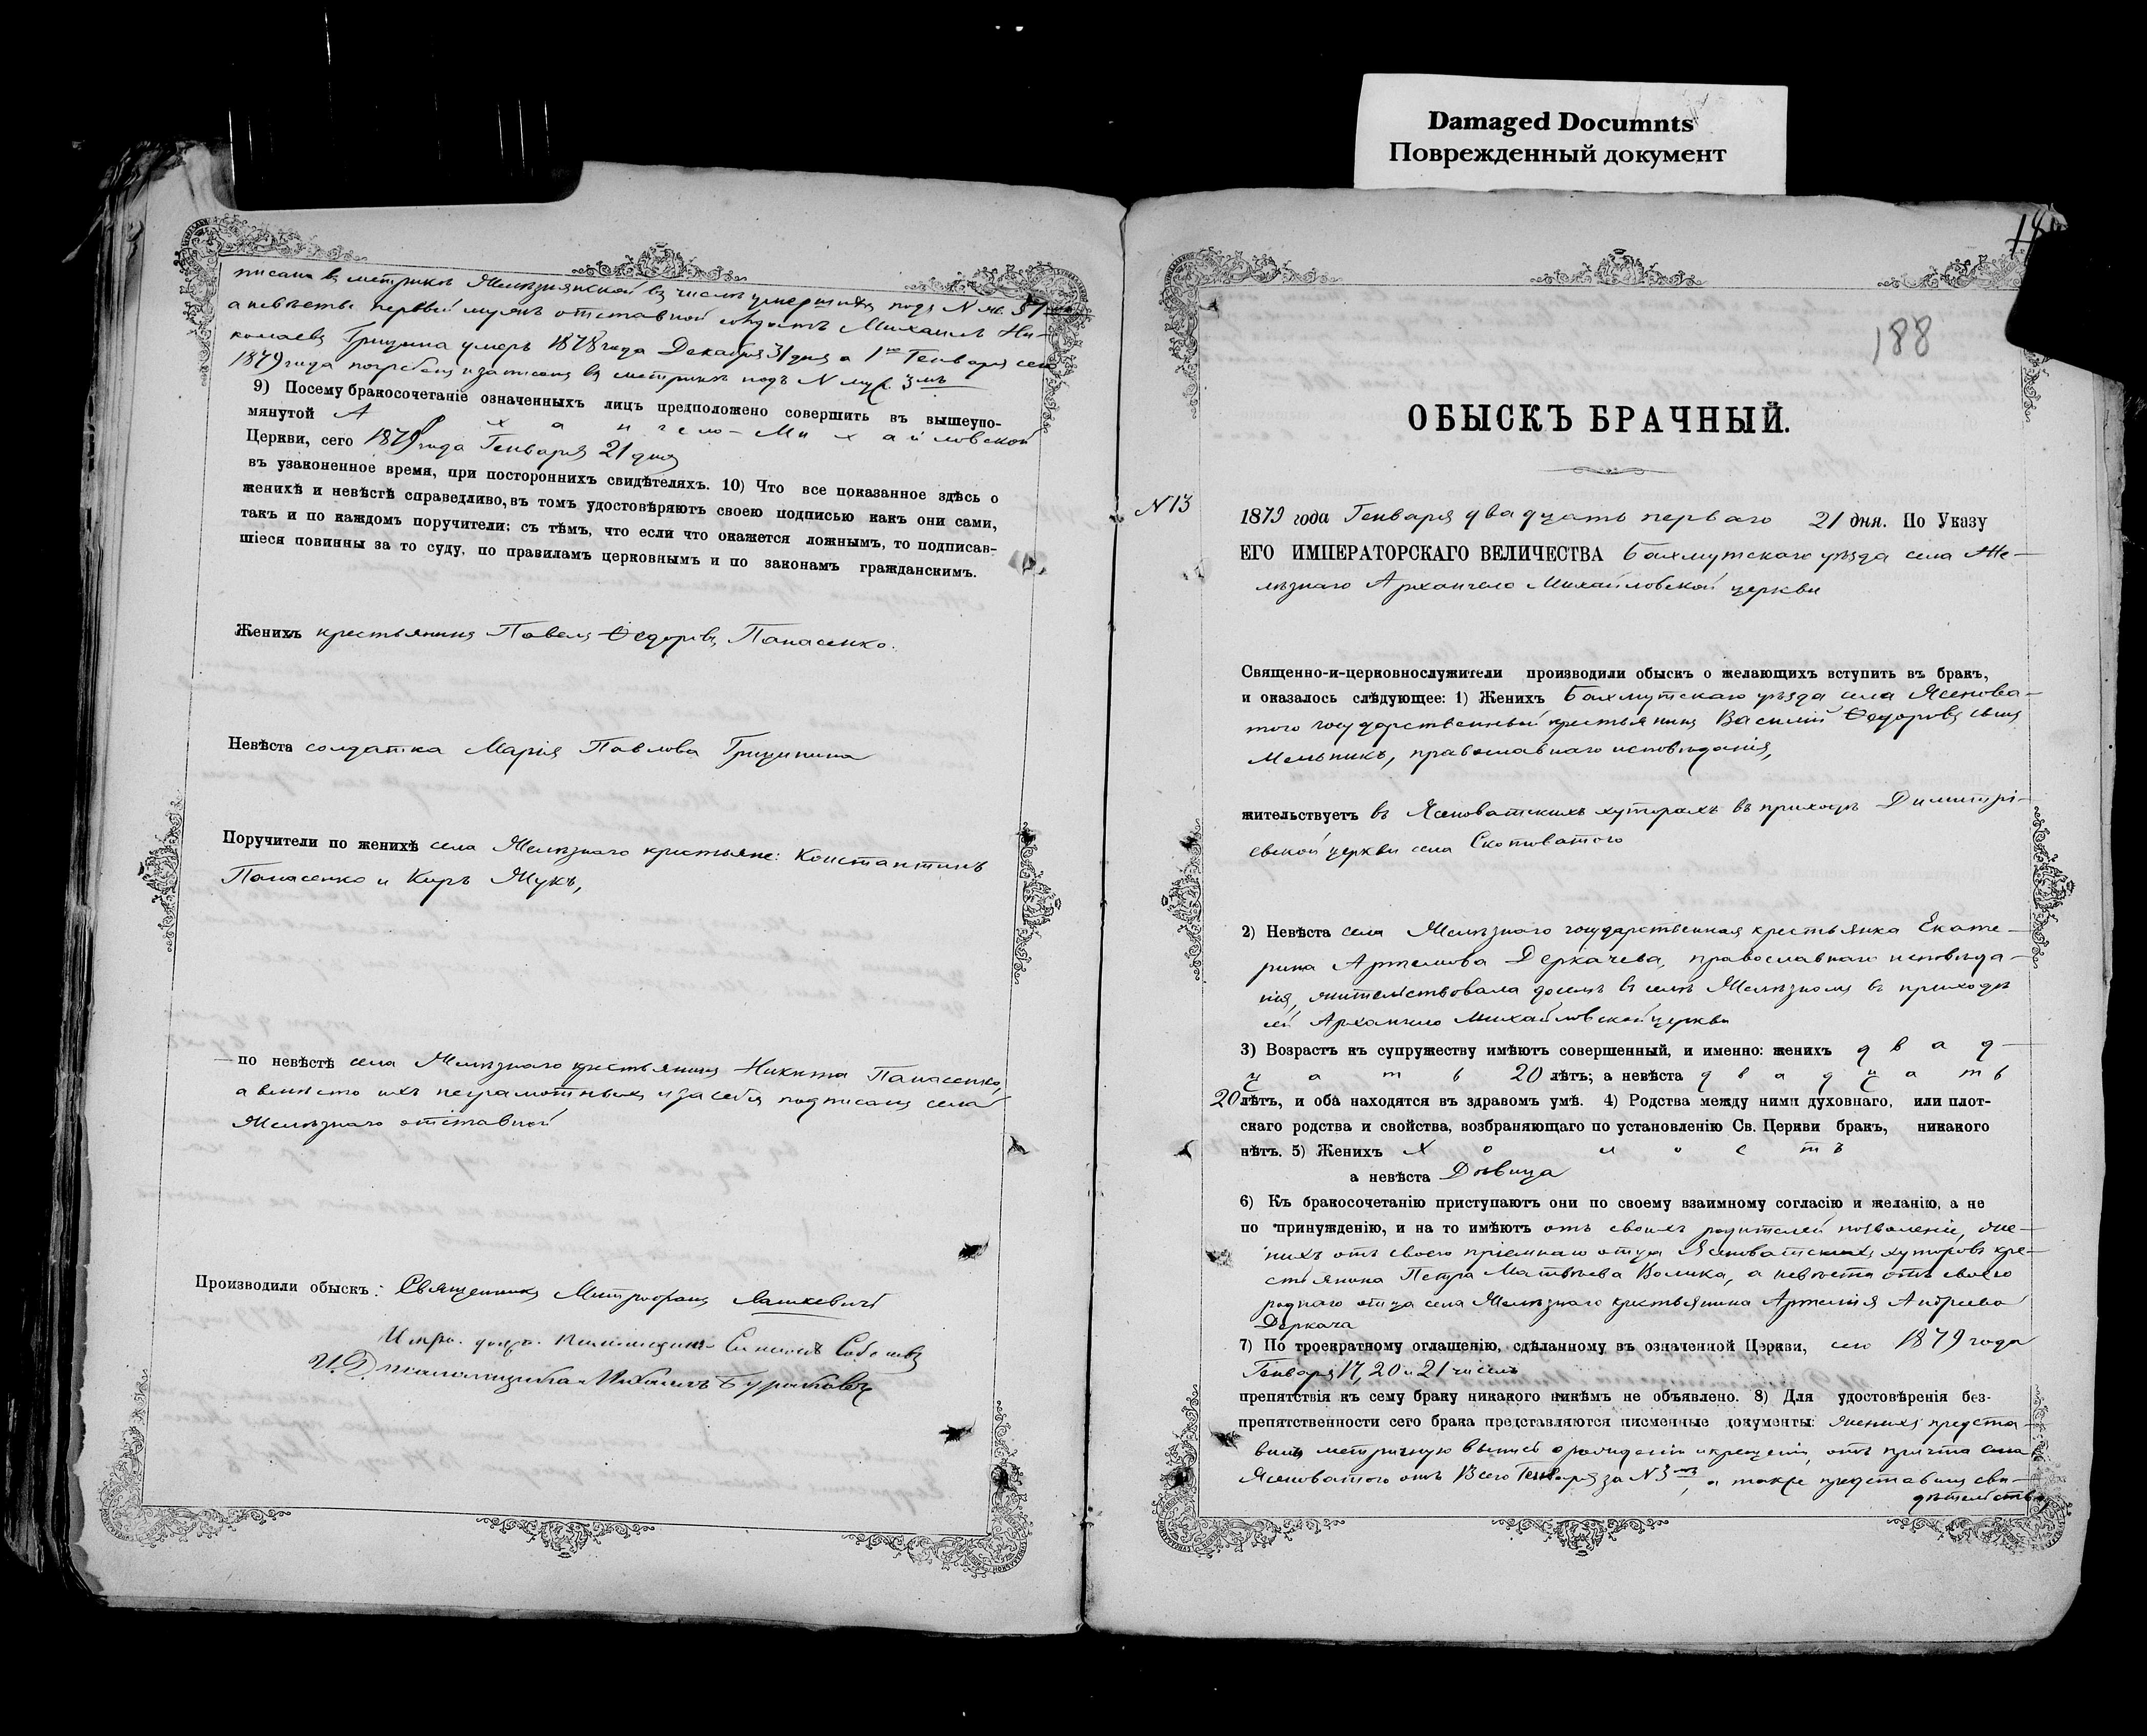 Damaged Documnts
Поврежденный документ
писана въ метрикѣ Желѣзнянской въ числѣ умершихъ подъ N ж. 37
а невѣсты первый мужъ отставной солдатъ Михаилъ Ни-
колаевъ Грицына умеръ 1878 года Декабря 31 дня а 1го Генваря сего
1879 года погребенъ и записанъ въ метрикѣ подъ N муж. 3мъ
9) Посему бракосочетаніе означенныхъ лицъ предположено совершить въ вышеупо-
мянутой Архангело-Михайловской
Церкви, сего 1879 года Генваря 21 дня
въ узаконенное время, при постороннихъ свидѣтеляхъ. 10) Что все показанное здѣсь о
женихѣ и невѣстѣ справедливо, въ томъ удостовѣряютъ своею подписью какъ они сами,
такъ и по каждомъ поручители; съ тѣмъ, что если что окажется ложнымъ, то подписав-
шіеся повинны за то суду, по правиламъ церковнымъ и по законамъ гражданскимъ.
Женихъ крестьянинъ Павелъ Ѳедоровъ Панасенко.
Невѣста солдатка Марія Павлова Грицынина
Поручители по женихѣ села Желѣзнаго крестьяне: Константинъ
Панасенко и Киръ Жукъ,
по невѣстѣ села Желѣзнаго крестьянинъ Никита Панасенко,
а вмѣсто ихъ неграмотныхъ и за себя подписалъ села
Желѣзнаго отставной
Производили обыскъ: Священникъ Митрофанъ
И. Д. псаломщика Михаилъ
188
ОБЫСКЪ БРАЧНЫЙ.
N 13
1879 года Генваря двадцать перваго 21 дня. По Указу
ЕГО ИМПЕРАТОРСКАГО ВЕЛИЧЕСТВА Бахмутскаго уѣзда села Же-
лѣзнаго Архангело Михайловской церкви
Священно-и-церковнослужители производили обыскъ о желающихъ вступить въ бракъ,
и оказалось слѣдующее: 1) Женихъ Бахмутскаго уѣзда села Ясенова-
того государственный крестьянинъ Василій Ѳедоровъ сынъ
Мельникъ, православнаго исповѣданія,
жительствуетъ въ Ясеноватскихъ хуторахъ въ приходѣ Димитрі-
евской церкви села Скотоватого
2) Невѣста села Желѣзнаго государственная крестьянка Екате-
рина Артемова Деркачева, православнаго исповѣда-
нія, жительствовала доселѣ въ селѣ Желѣзномъ въ приходѣ
сей Архангело Михайловской церкви
3) Возрастъ къ супружеству имѣютъ совершенный, и именно: женихъ двад-
цать 20 лѣтъ; а невѣста двадцать
20 лѣтъ, и оба находятся въ здравомъ умѣ. 4) Родства между ними духовнаго, или плот-
скаго родства и свойства, возбраняющаго по установленію Св. Церкви бракъ, никакого
нѣтъ. 5) Женихъ холостъ
а невѣста Дѣвица
6) Къ бракосочетанію приступаютъ они по своему взаимному согласію и желанію, а не
по принужденію, и на то имѣютъ отъ своихъ родителей позволеніе, же-
нихъ отъ своего пріемнаго отца Ясеноватскихъ хуторовъ кре-
стьянина Петра Матвѣева Волика, а невѣста отъ своего
роднаго отца села Желѣзнаго крестьянина Артемія Андреева
Деркача
7) По троекратному оглашенію, сдѣланному въ означенной Церкви, сего 1879 года
Генваря 17, 20 и 21 числъ
препятствія къ сему браку никакого никѣмъ не объявлено. 8) Для удостовѣренія без-
препятственности сего брака представляются писменные документы: женихъ предста-
вилъ метричную выпись о рожденіи и крещеніи, отъ причта села
Ясеноватого отъ 13 сего Генваря за N 3мъ, а также представилъ сви-
дѣтельство